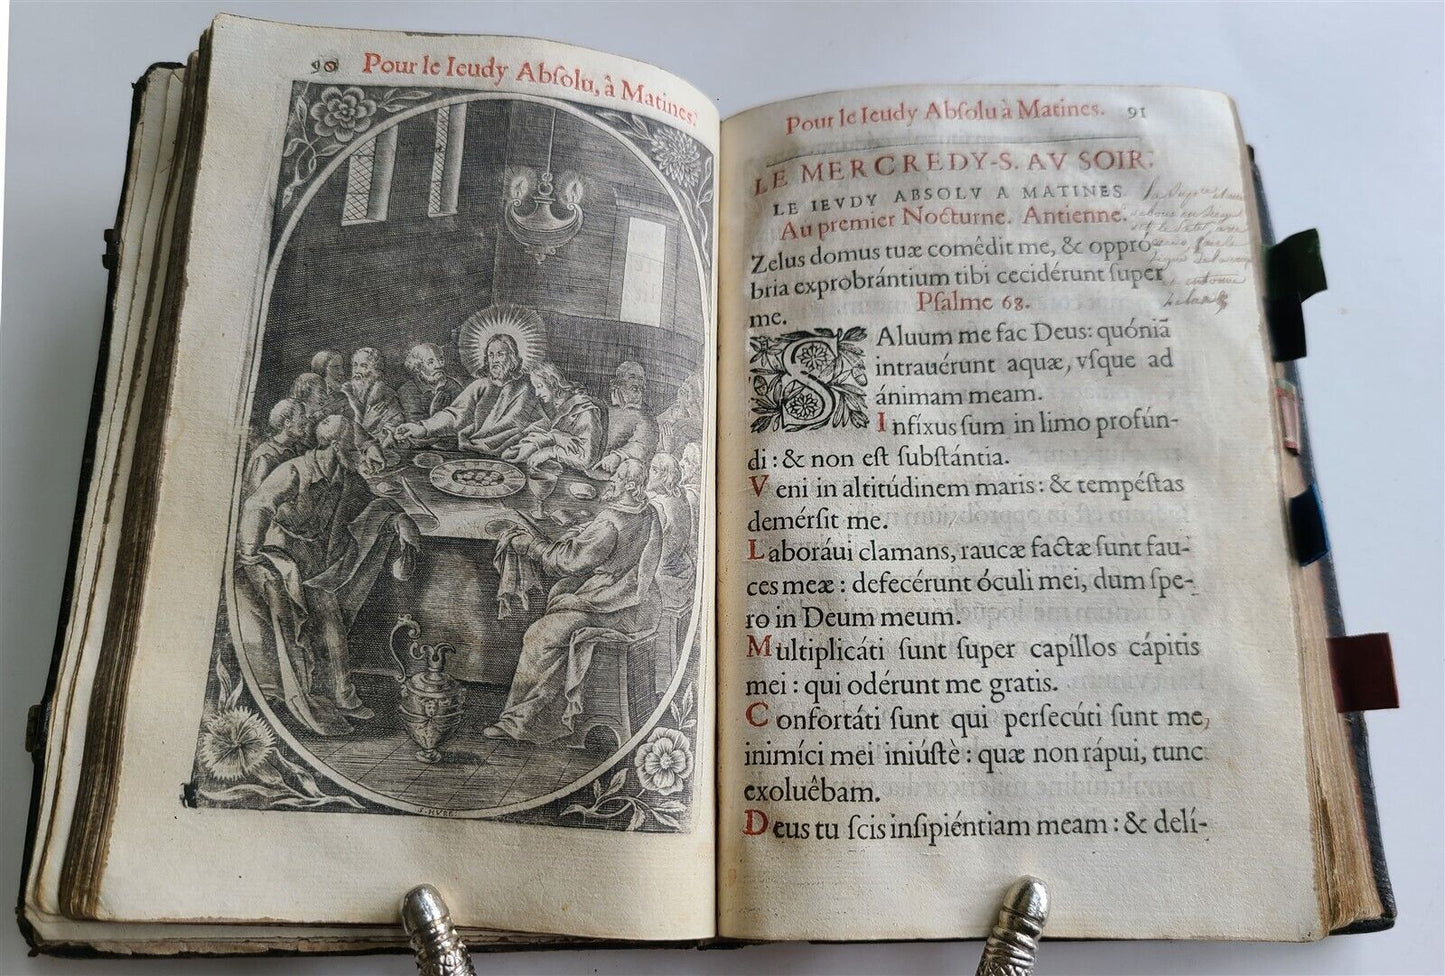 90 Pour le Ieudy Abſolu, à Matines.
I. HVRE
Pour le Ieudy Abſolu à Matines. 91
LE MERCREDY-S. AV SOIR.
LE IEVDY ABSOLV A MATINES
Au premier Nocturne. Antienne.
Zelus domus tuæ comêdit me, & oppro-
bria exprobrántium tibi cecidérunt ſuper
me.
Pſalme 68.
SAluum me fac Deus: quóniã
intrauérunt aquæ, vſque ad
ánimam meam.
Infíxus ſum in limo profún-
di : & non eſt ſubſtántia.
Veni in altitúdinem maris : & tempéſtas
demérſit me.
Laboráui clamans, raucæ factæ ſunt fau-
ces meæ : defecérunt óculi mei, dum ſpe-
ro in Deum meum.
Multiplicáti ſunt ſuper capíllos cápitis
mei : qui odérunt me gratis.
Confortáti ſunt qui perſecúti ſunt me,
inimíci mei iniúſtè : quæ non rápui, tunc
exoluêbam.
Deus tu ſcis inſipiéntiam meam : & delí-